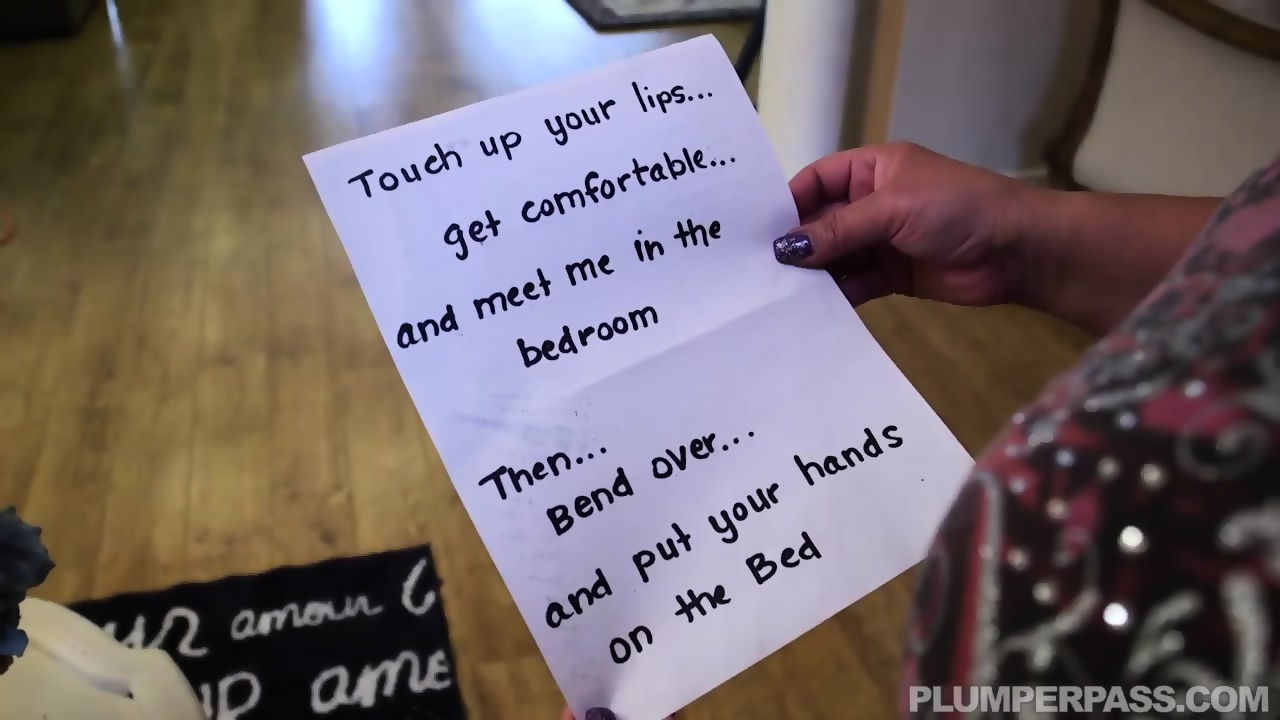 Touch up your lips...
get comfortable...
and meet me in the
bedroom
Then...
Bend over...
and put your hands
on the Bed
amour
PLUMPERPASS.COM